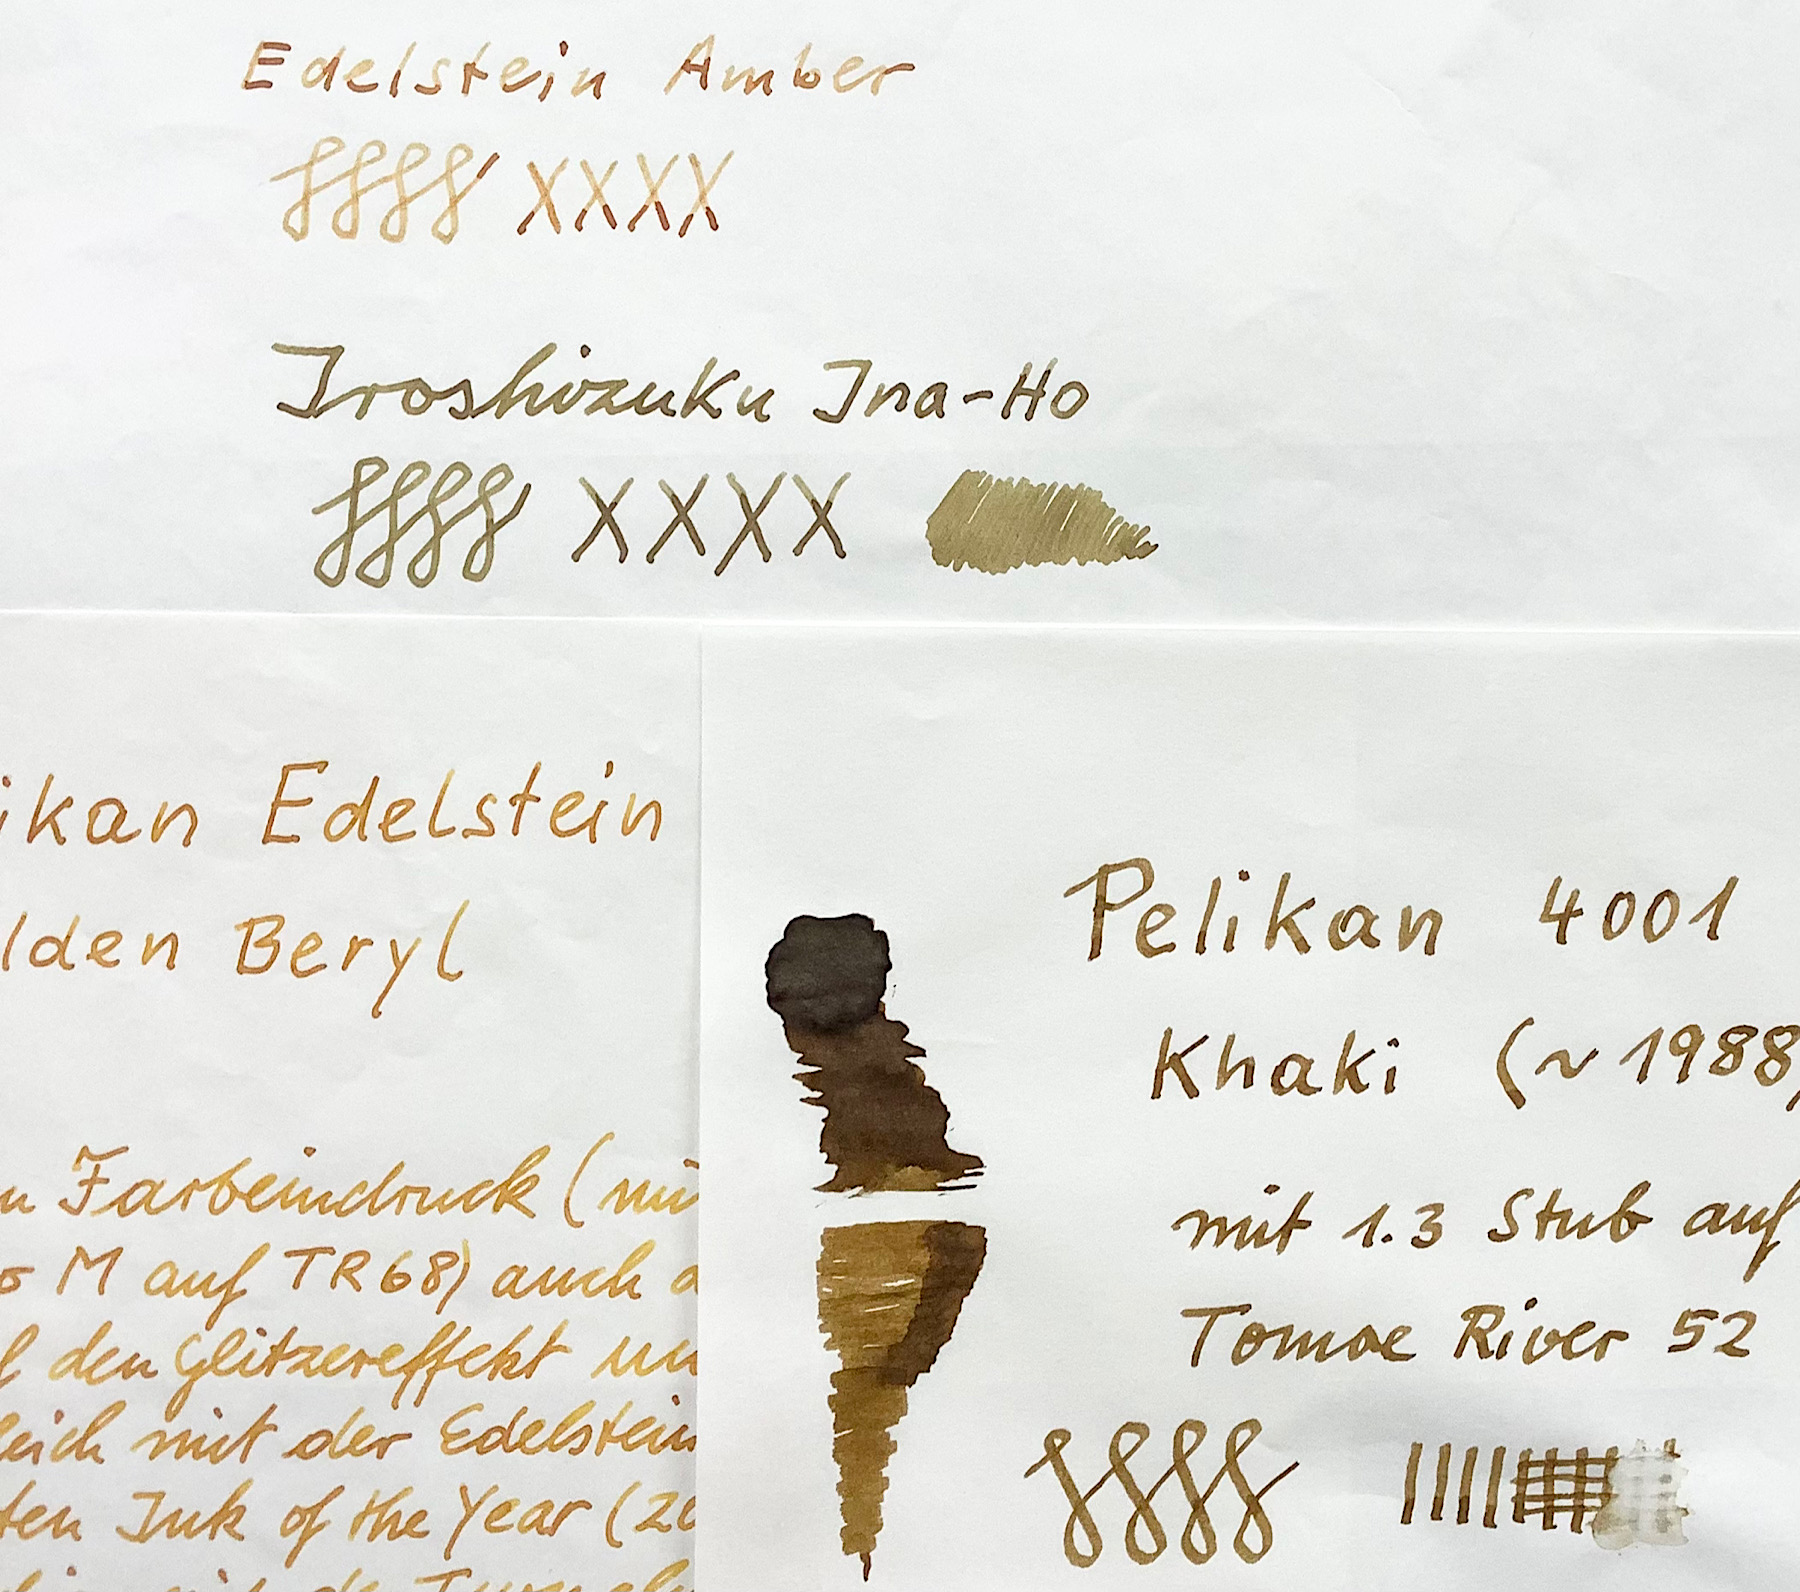 Edelstein Amber
XXXX
Iroshizuku Ina-Ho
XXXX
ikan Edelstein
lden Beryl
n Farbeindruck (mi
o M auf TR68) auch a
l den Glitzereffekt un
leich mit der Edelstein
ten Ink of the Year (20
Pelikan 4001
Khaki (~1988)
mit 1.3 Stub auf
Tomoe River 52